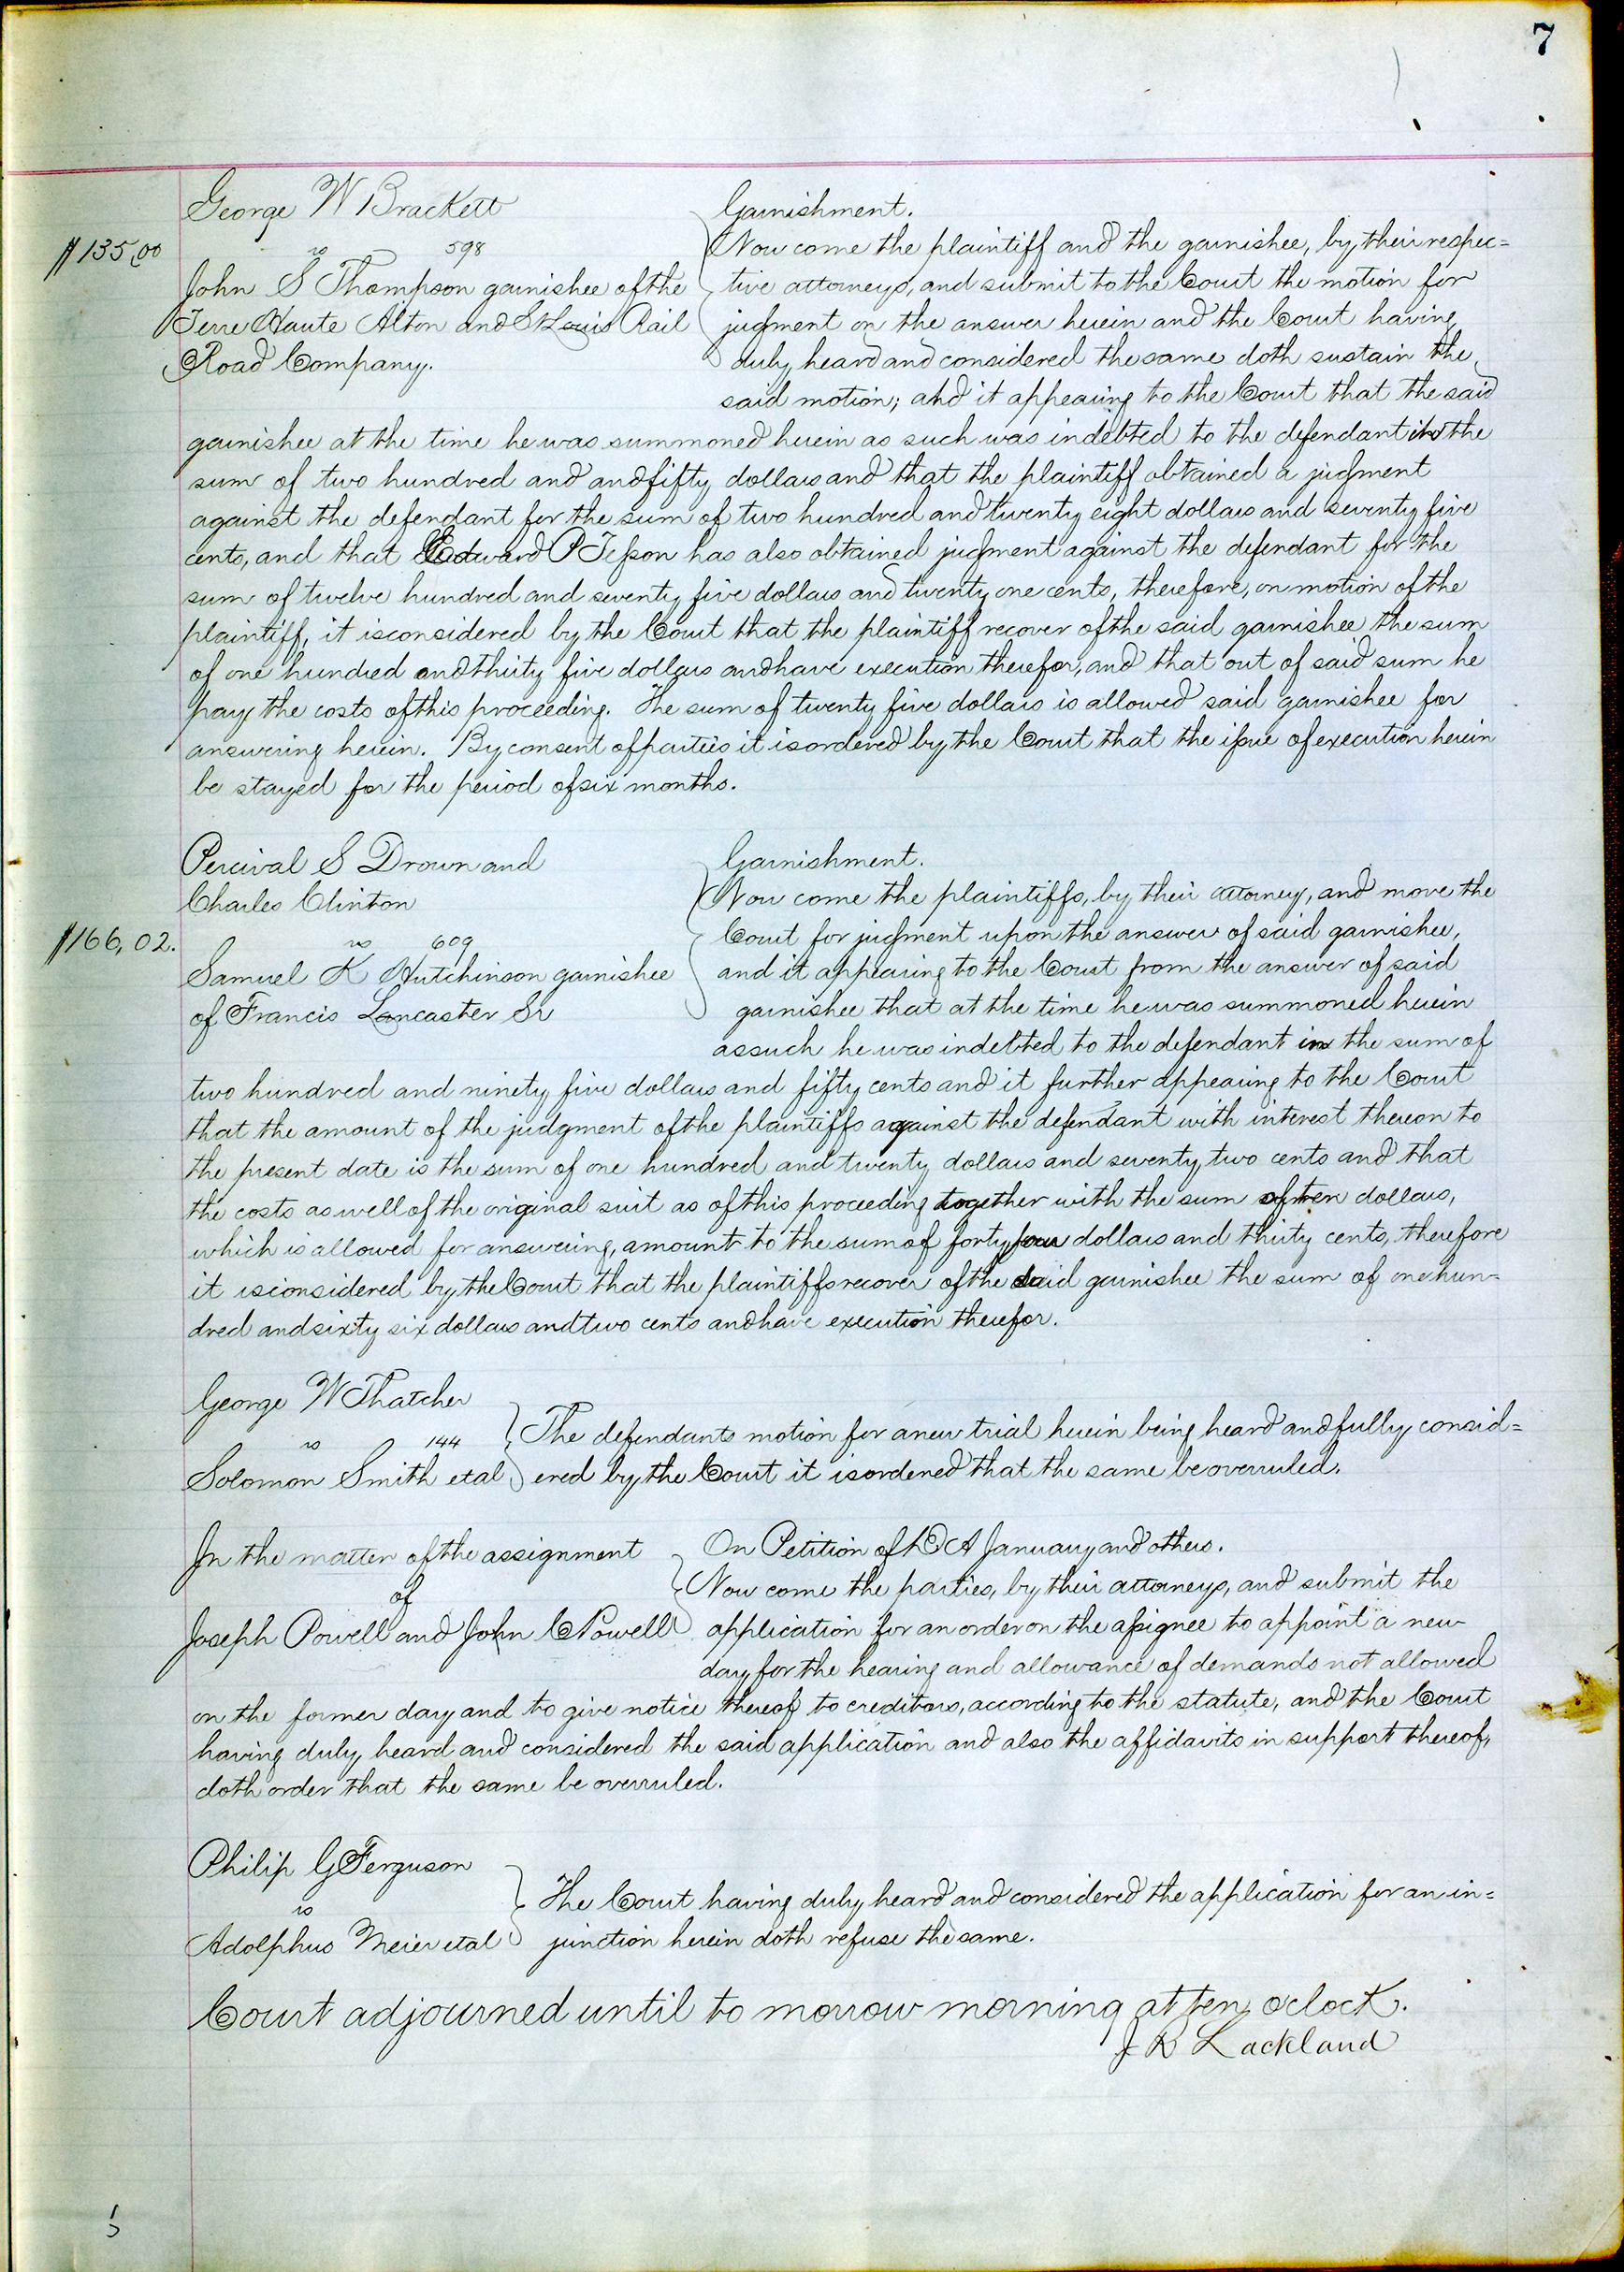 7
George W Brackett
$135,00
vs 598
John S Thompson garnishee of the
Terre Haute Alton and St Louis Rail
Road Company.
Garnishment.
Now come the plaintiff and the garnishee, by their respec=
tive attorneys, and submit to the Court the motion for
judgment on the answer herein and the Court having
duly heard and considered the same doth sustain the
said motion; and it appearing to the Court that the said
garnishee at the time he was summoned herein as such was indebted to the defendant in the
sum of two hundred and and fifty dollars and that the plaintiff obtained a judgment
against the defendant for the sum of two hundred and twenty eight dollars and seventy five
cents, and that Edward P Tesson has also obtained judgment against the defendant for the
sum of twelve hundred and seventy five dollars and twenty one cents, therefore, on motion of the
plaintiff, it is considered by the Court that the plaintiff recover of the said garnishee the sum
of one hundred and thirty five dollars and have execution therefor, and that out of said sum he
pay the costs of this proceeding. The sum of twenty five dollars is allowed said garnishee for
answering herein. By consent of parties it is ordered by the Court that the issue of execution herein
be stayed for the period of six months.
Percival S Drown and
Charles Clinton
$166,02.
vs 609
Samuel K Hutchinson garnishee
of Francis Lancaster Sr
Garnishment.
Now come the plaintiffs, by their attorney, and move the
Court for judgment upon the answer of said garnishee,
and it appearing to the Court from the answer of said
garnishee that at the time he was summoned herein
as such he was indebted to the defendant in the sum of
two hundred and ninety five dollars and fifty cents and it further appearing to the Court
that the amount of the judgment of the plaintiffs against the defendant with interest thereon to
the present date is the sum of one hundred and twenty dollars and seventy two cents and that
the costs as well of the original suit as of this proceeding together with the sum of ten dollars,
which is allowed for answering, amount to the sum of forty four dollars and thirty cents, therefore
it is considered by the Court that the plaintiffs recover of the said garnishee the sum of one hun-
dred and sixty six dollars and two cents and have execution therefor.
George W Thatcher
vs 144
Solomon Smith et al
The defendants motion for a new trial herein being heard and fully consid=
ered by the Court it is ordered that the same be overruled.
In the matter of the assignment
of
Joseph Powell and John C Powell
On Petition of D A January and others.
Now come the parties, by their attorneys, and submit the
application for an order on the assignee to appoint a new
day for the hearing and allowance of demands not allowed
on the former day and to give notice thereof to creditors, according to the statute, and the Court
having duly heard and considered the said application and also the affidavits in support thereof,
doth order that the same be overruled.
Philip G Ferguson
vs
Adolphus Meier et al
The Court having duly heard and considered the application for an in=
junction herein doth refuse the same.
Court adjourned until to morrow morning at ten o'clock.
J R Lackland